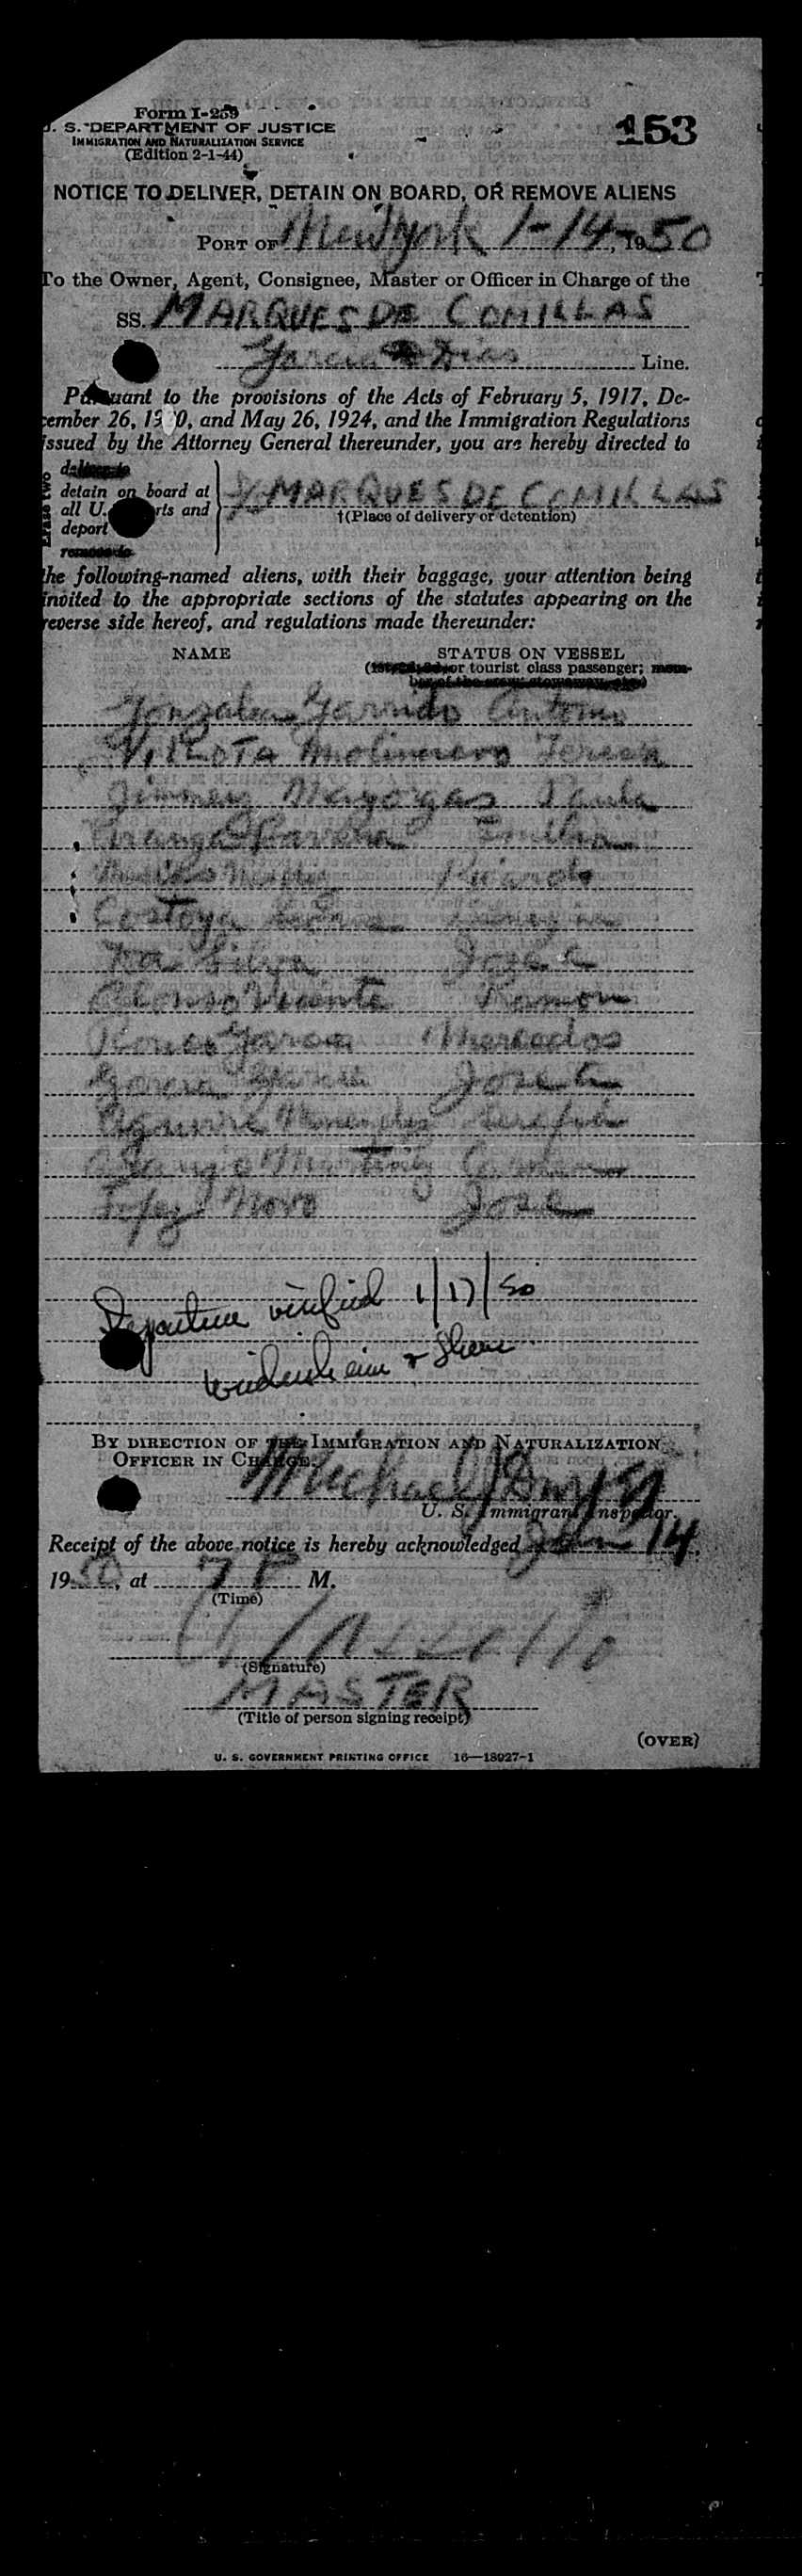 Form I-259
U. S. DEPARTMENT OF JUSTICE
IMMIGRATION AND NATURALIZATION SERVICE
(Edition 2-1-44)
153
NOTICE TO DELIVER, DETAIN ON BOARD, OR REMOVE ALIENS
PORT OF New York 1-14-, 1950
To the Owner, Agent, Consignee, Master or Officer in Charge of the
SS. MARQUES DE COMILLAS
Garcia & Dias Line.
Pursuant to the provisions of the Acts of February 5, 1917, De-
cember 26, 1920, and May 26, 1924, and the Immigration Regulations
issued by the Attorney General thereunder, you are hereby directed to
deliver to
detain on board at
all U. S. ports and
deport
remove to
MARQUES DE COMILLAS
†(Place of delivery or detention)
the following-named aliens, with their baggage, your attention being
invited to the appropriate sections of the statutes appearing on the
reverse side hereof, and regulations made thereunder:
NAME STATUS ON VESSEL
or tourist class passenger; mem-
ber of the crew, stowaway, etc.)
Gonzalez Garrido Antonio
Molinero Teresa
Jimenez Mayorgas Paula
Emilia
Ricardo
Costoya
Silva Jose
Alonso Vicente Ramon
Garcia Mercedos
Garcia Jose
Aguirre Menendez
Martinez
Lopez Novo Jose
Departure verified 1/17/50
By DIRECTION OF THE IMMIGRATION AND NATURALIZATION
OFFICER IN CHARGE:
Michael
U. S. Immigrant Inspector.
Receipt of the above notice is hereby acknowledged Jan 14,
1950, at 7 P M.
(Time)
(Signature)
MASTER
(Title of person signing receipt)
(OVER)
U. S. GOVERNMENT PRINTING OFFICE 16—18927-1